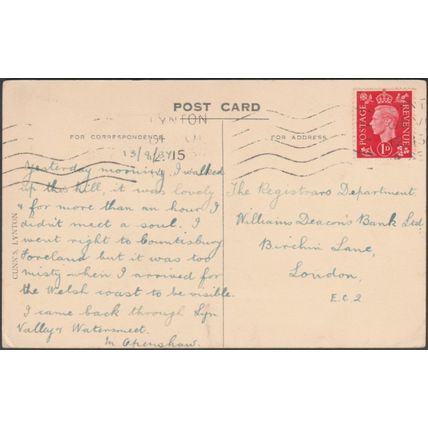 POST CARD
LYNTON
FOR CORRESPONDENCE
FOR ADDRESS
POSTAGE REVENUE
1D
15
Yesterday morning I walked
up this hill, it was lovely
& for more than an hour I
didn't meet a soul. I
went right to Countisbury
Foreland but it was too
misty when I arrived for
the Welsh coast to be visible.
I came back through Lyn
Valley & Watersmeet.
M Openshaw.
The Registrars Department
Williams Deacon's Bank Ltd
Birchin Lane,
London.
E.C.2
GUNN'S, LYNTON